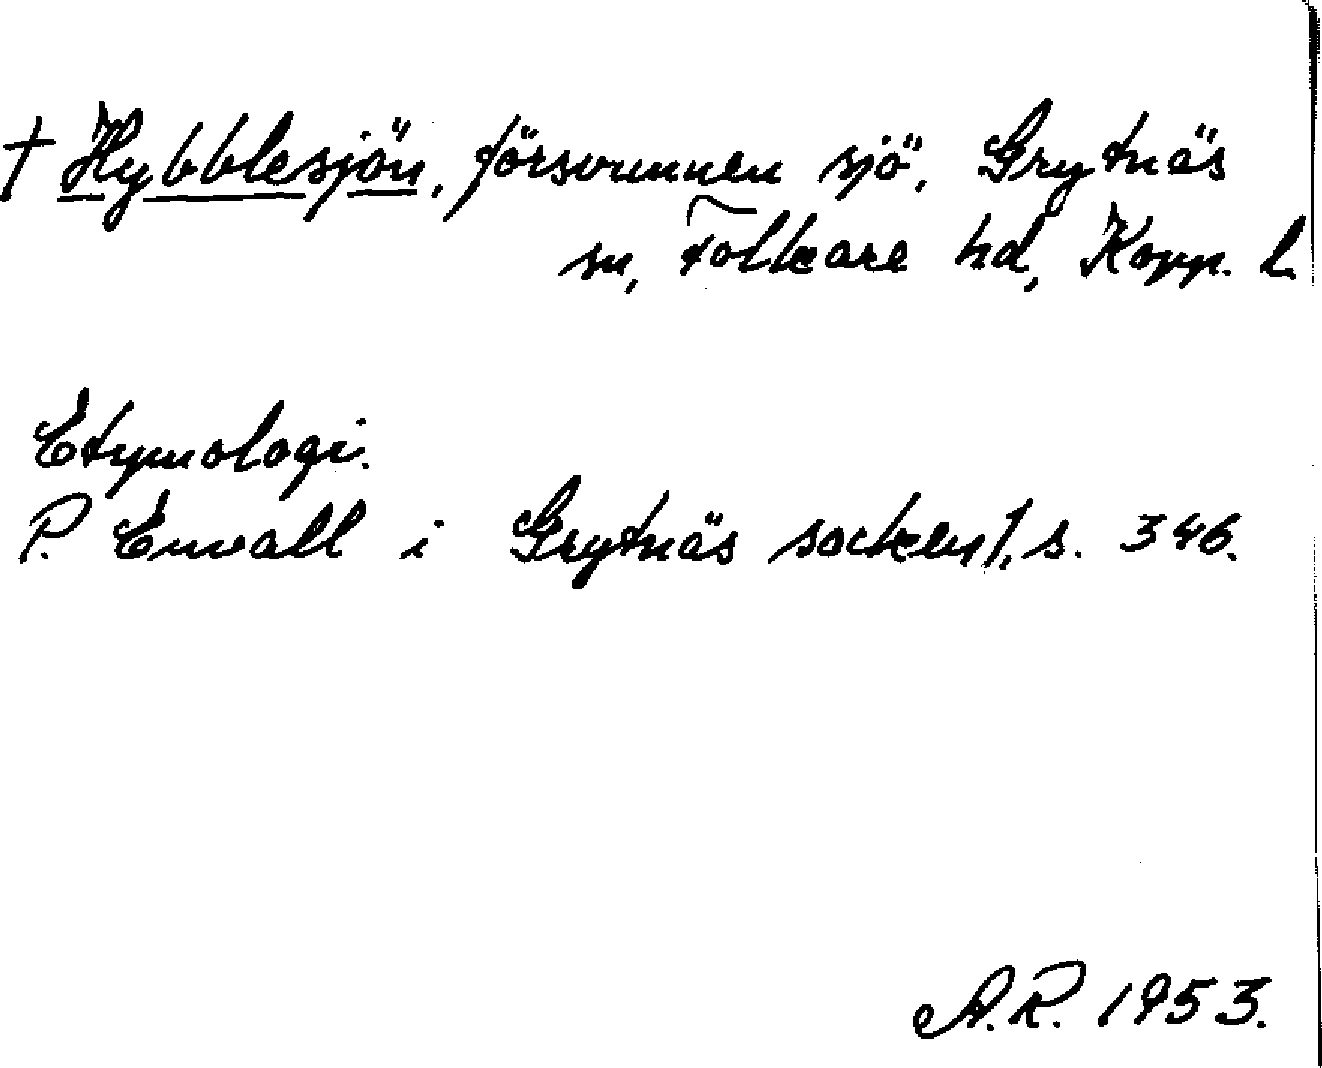 † Hybblesjön, försvunnen sjö, Grytnäs
sn, Folkare hd, Kopp. l.
Etymologi.
P. Envall i Grytnäs socken 1, s. 346.
A.R. 1953.